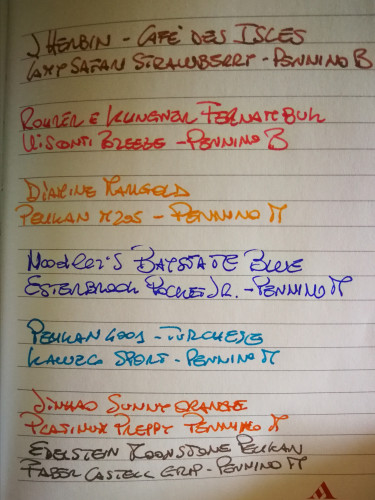 J HERBIN - CAFÉ DES ISLES
LAMY SAFARI STRAWBERRY - PENNINO B
ROHRER E KLINGNER FERNAMBUK
VISCONTI BREEZE - PENNINO B
DIAMINE MARIGOLD
PELIKAN M205 - PENNINO M
NOODLER'S BAYSTATE BLUE
ESTERBROOK POCKET JR. - PENNINO M
PELIKAN 4001 - TURCHESE
KAWECO SPORT - PENNINO M
JINHAO SUNNY ORANGE
PLATINUM PREPPY PENNINO M
EDELSTEIN MOONSTONE PELIKAN
FABER CASTELL GRIP - PENNINO M